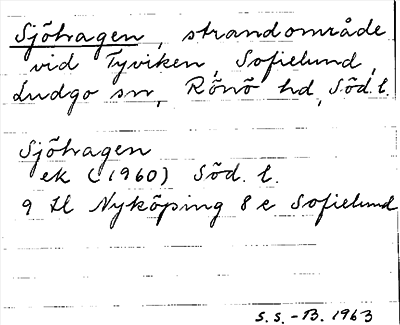 Sjöhagen, strandområde
vid Tyviken, Sofielund,
Ludgo sn, Rönö hd, Söd. l.
Sjöhagen
ek (1960) Söd. l.
9 H Nyköping 8 e Sofielund
S. S. - B. 1963